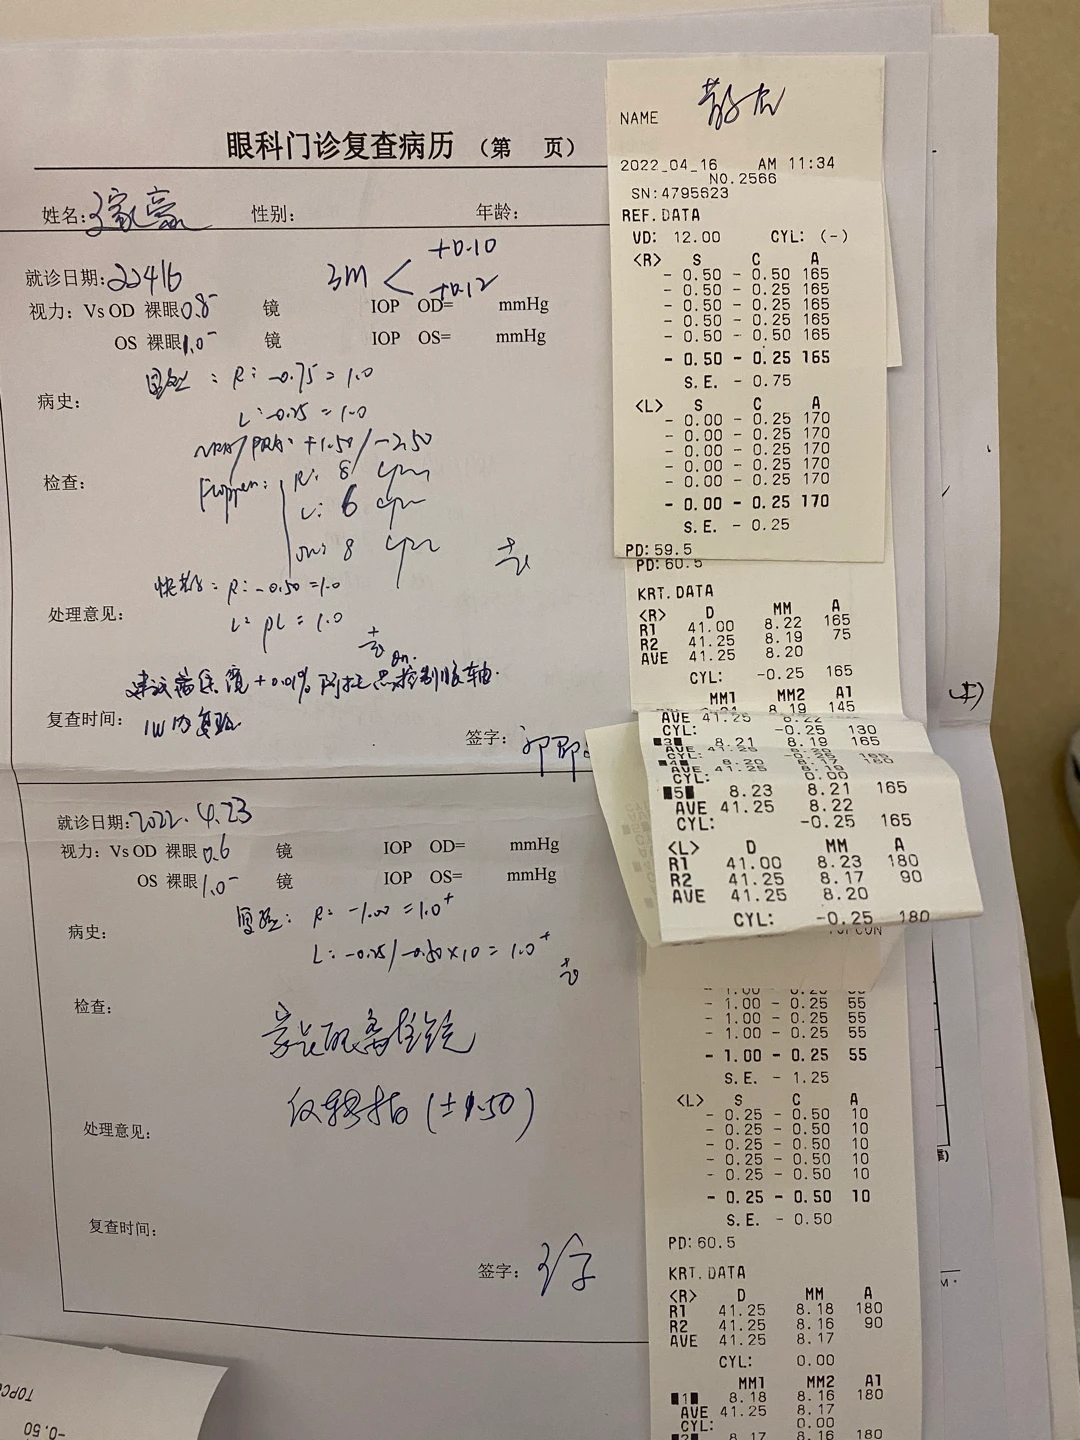 眼科门诊复查病历 (第 页)
姓名: 性别: 年龄:
就诊日期: 22416 3M < +0.10 +0.12
视力: Vs OD 裸眼 0.8⁻ 镜 IOP OD= mmHg
OS 裸眼 1.0⁻ 镜 IOP OS= mmHg
: R: -0.75 = 1.0
病史:
L: -0.25 = 1.0
NRA/PRA: +1.50/-2.50
检查:
R: 8 cpm
L: 6 cpm
8 cpm
R: -0.50 = 1.0
处理意见:
L: PL = 1.0
+0.01% 阿托品控制眼轴.
复查时间: 1W 内复验
签字:
就诊日期: 2022.4.23
视力: Vs OD 裸眼 0.6 镜 IOP OD= mmHg
OS 裸眼 1.0⁻ 镜 IOP OS= mmHg
复验: R: -1.00 = 1.0⁺
病史:
L: -0.25/-0.50×10 = 1.0⁺
检查:
(±1.50)
处理意见:
复查时间:
签字:
NAME
2022_04_16 AM 11:34
NO.2566
SN:4795623
REF.DATA
VD: 12.00 CYL: (-)
<R> S C A
- 0.50 - 0.50 165
- 0.50 - 0.25 165
- 0.50 - 0.25 165
- 0.50 - 0.25 165
- 0.50 - 0.50 165
- 0.50 - 0.25 165
S.E. - 0.75
<L> S C A
- 0.00 - 0.25 170
- 0.00 - 0.25 170
- 0.00 - 0.25 170
- 0.00 - 0.25 170
- 0.00 - 0.25 170
- 0.00 - 0.25 170
S.E. - 0.25
PD:59.5
PD:60.5
KRT.DATA
<R> D MM A
R1 41.00 8.22 165
R2 41.25 8.19 75
AVE 41.25 8.20
CYL: -0.25 165
MM1 MM2 A1
8.19 145
AVE 41.25 8.22
CYL: -0.25 130
3 8.21 8.19 165
AVE 41.25 8.20
CYL: -0.25 165
4 8.20 8.17 160
AVE 41.25 8.19
CYL: 0.00
5 8.23 8.21 165
AVE 41.25 8.22
CYL: -0.25 165
<L> D MM A
R1 41.00 8.23 180
R2 41.25 8.17 90
AVE 41.25 8.20
CYL: -0.25 180
TOPCON
- 1.00 - 0.25 55
- 1.00 - 0.25 55
- 1.00 - 0.25 55
- 1.00 - 0.25 55
- 1.00 - 0.25 55
S.E. - 1.25
<L> S C A
- 0.25 - 0.50 10
- 0.25 - 0.50 10
- 0.25 - 0.50 10
- 0.25 - 0.50 10
- 0.25 - 0.50 10
- 0.25 - 0.50 10
S.E. - 0.50
PD:60.5
KRT.DATA
<R> D MM A
R1 41.25 8.18 180
R2 41.25 8.16 90
AVE 41.25 8.17
CYL: 0.00
MM1 MM2 A1
1 8.18 8.16 180
AVE 41.25 8.17
CYL: 0.00
2 8.17 8.16 180
-0.50